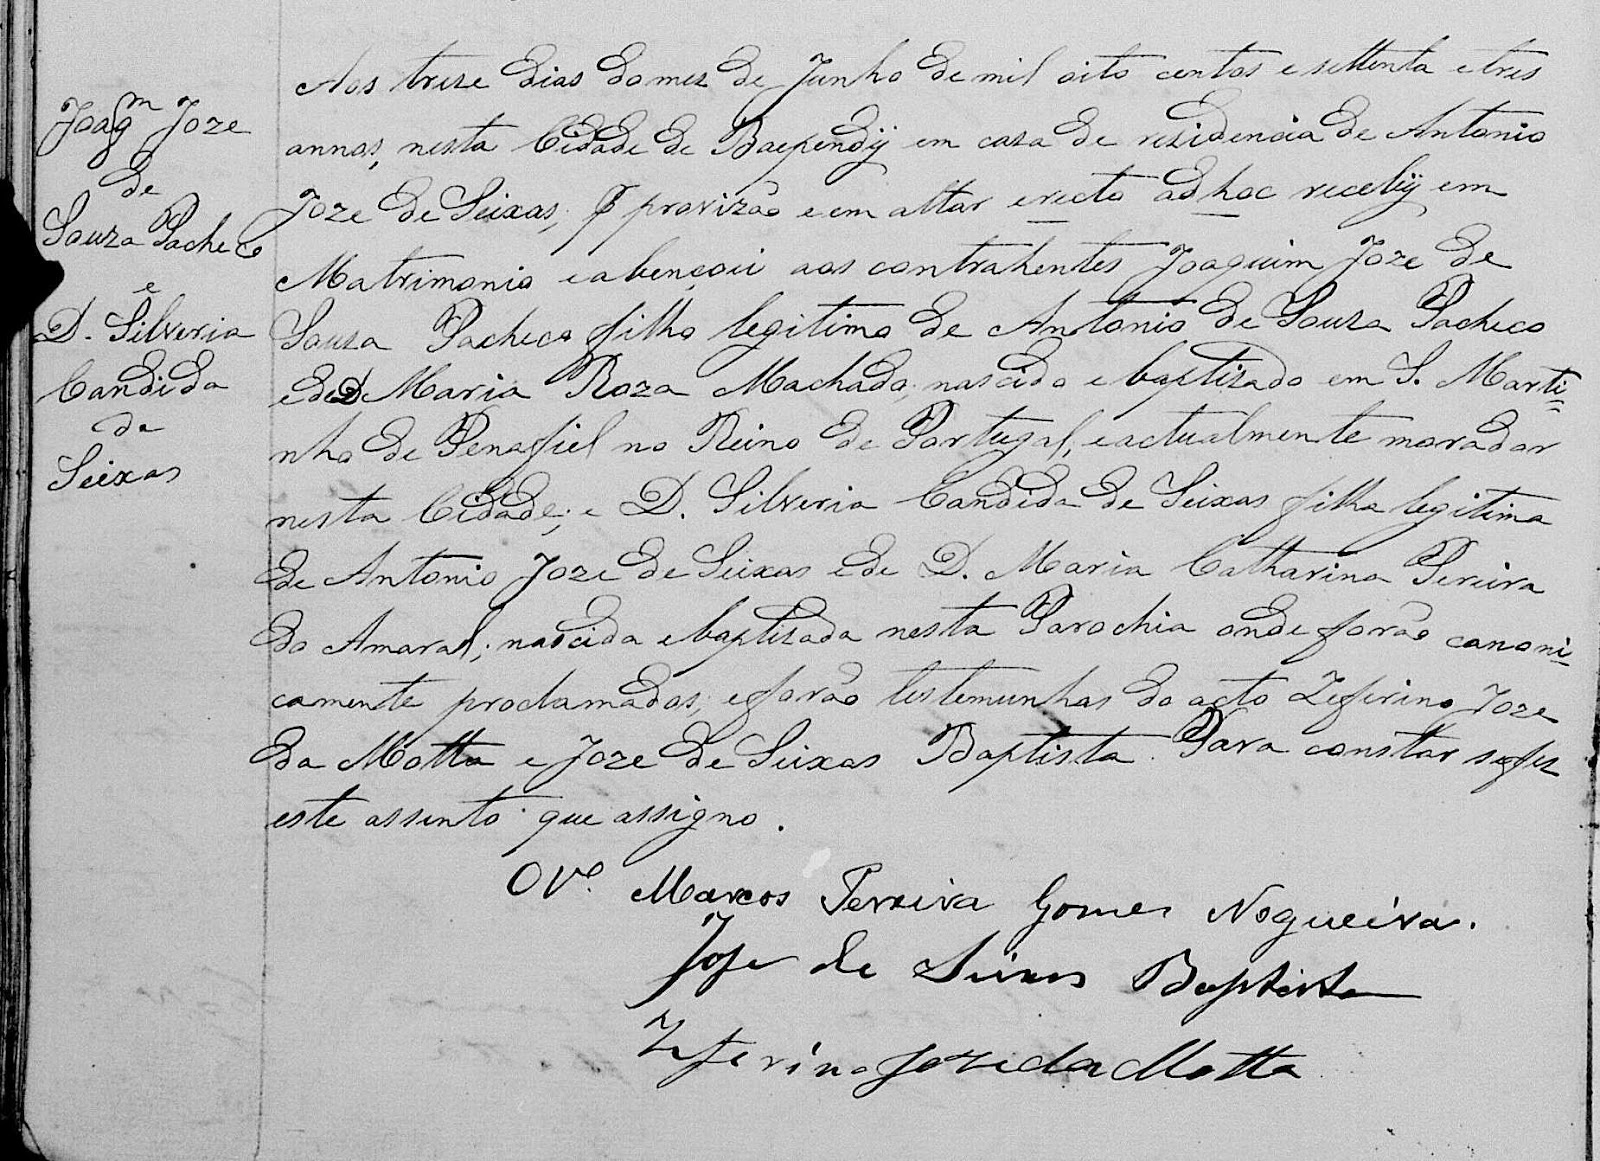 Joaqm Joze
de
Souza Pacheco
e
D. Silveria
Candida
de
Seixas
Aos treze dias do mez de Junho de mil oito centos e settenta e tres
annos, nesta Cidade de Baependÿ em caza de rezidencia de Antonio
Joze de Seixas; p provizão e em altar erecto ad hoc recebÿ em
Matrimonio e abençoei aos contrahentes Joaquim Joze de
Souza Pacheco filho legitimo de Antonio de Souza Pacheco
e de D Maria Roza Machado; nascido e baptizado em S. Marti=
nho de Penafiel no Reino de Portugal, e actualmente morador
nesta Cidade; e D. Silveria Candida de Seixas filha legitima
de Antonio Joze de Seixas e de D. Maria Catharina Pereira
do Amaral; nascida e baptizada nesta Parochia onde forão canoni=
camente proclamados; e forão testemunhas do acto Zeferino Joze
da Motta e Joze de Seixas Baptista. Para constar se fez
este assento que assigno.
O Vo. Marcos Pereira Gomes Nogueira.
Jose de Seixas Baptista
Zeferino Joze da Motta